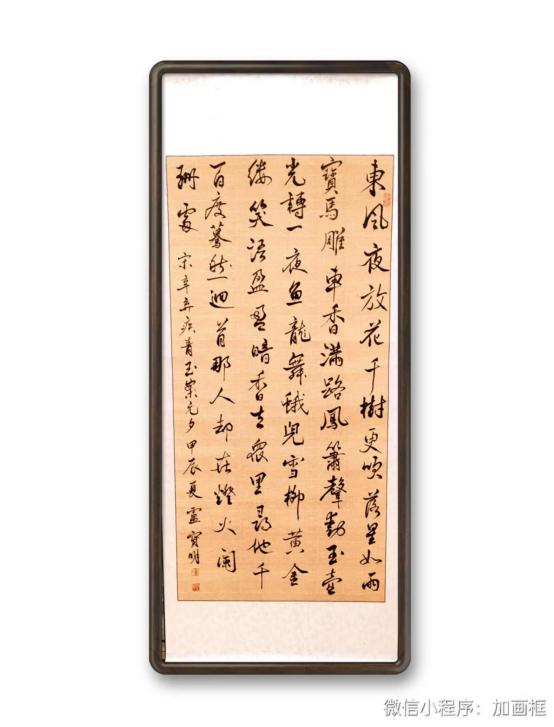 東風夜放花千樹更吹落星如雨
寶馬雕車香滿路鳳簫聲動玉壺
光轉一夜魚龍舞蛾兒雪柳黃金
縷笑語盈盈暗香去眾里尋他千
百度驀然迴首那人却在燈火闌
珊處 宋辛弃疾青玉案元夕甲辰夏 寶明
微信小程序：加画框